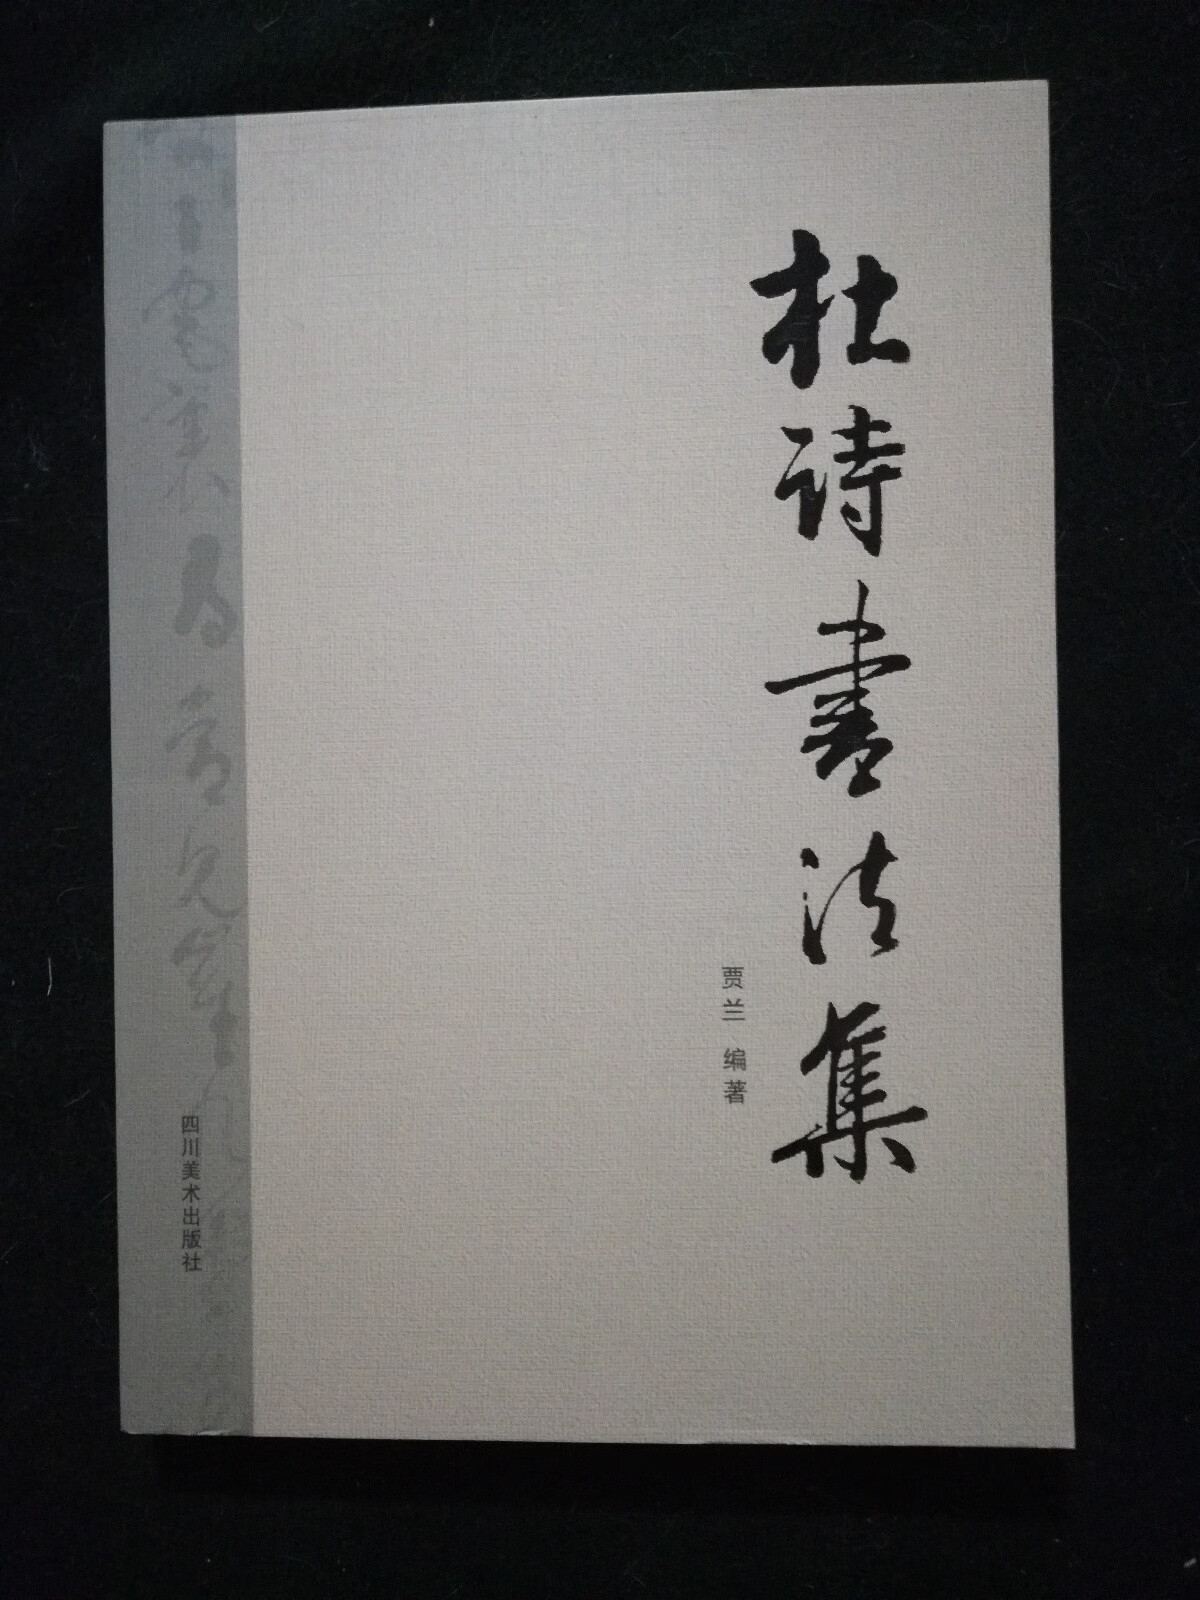 杜诗书法集
贾兰 编著
四川美术出版社